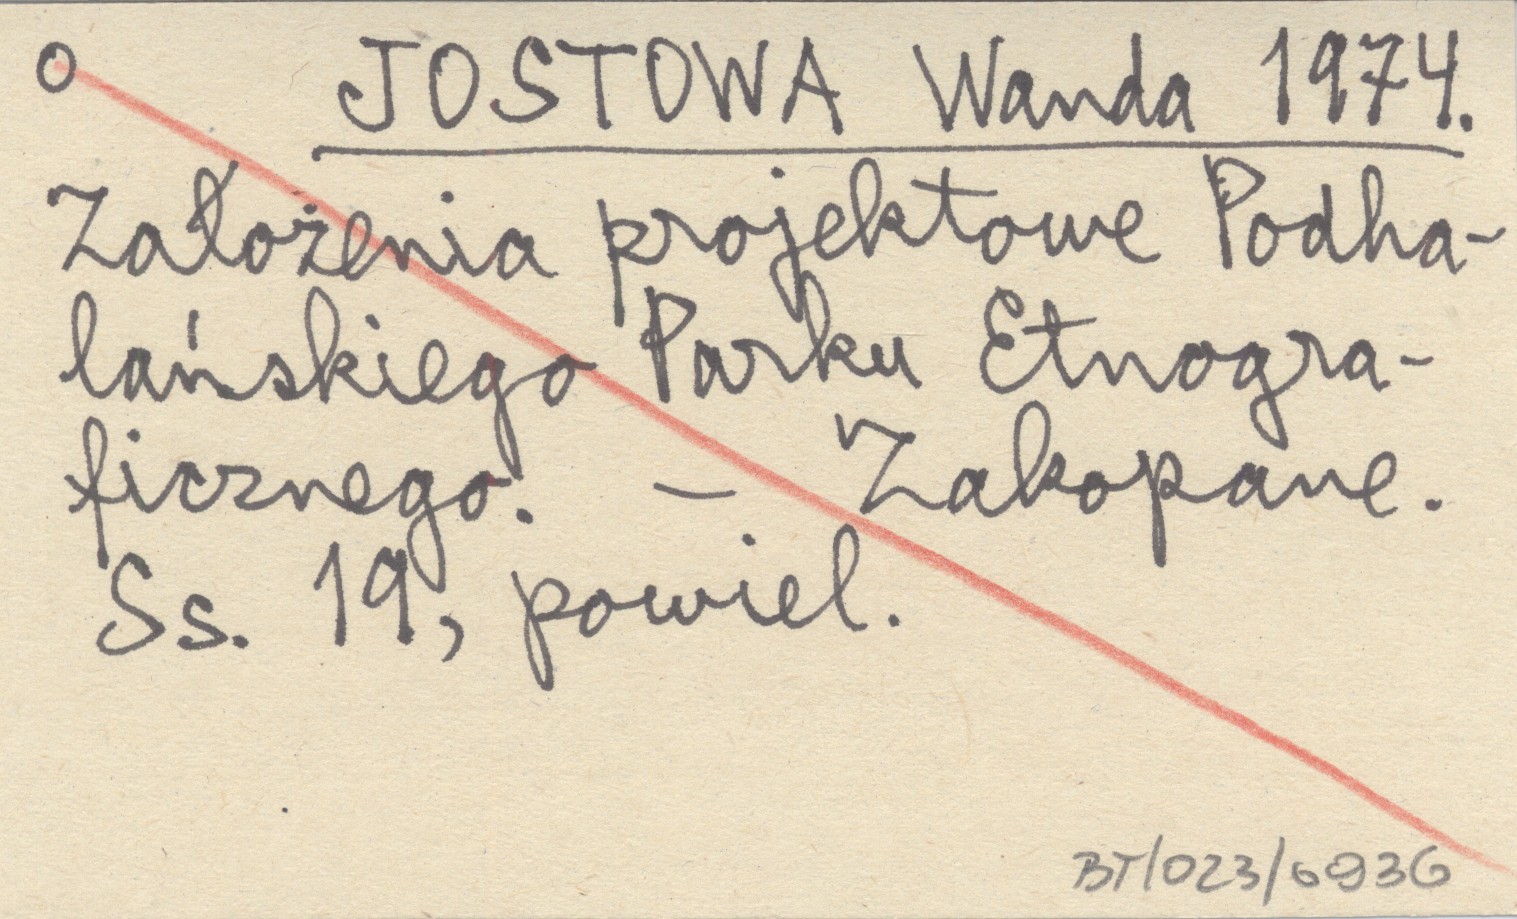 o JOSTOWA Wanda 1974.
Założenia projektowe Podha-
lańskiego Parku Etnogra-
ficznego. – Zakopane.
Ss. 19, powiel.
BT/023/6936